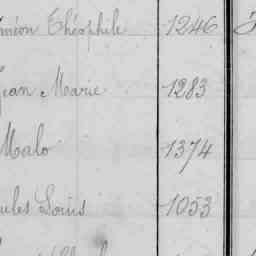 Théophile 1246
Jean Marie 1283
Malo 1374
Louis 1053